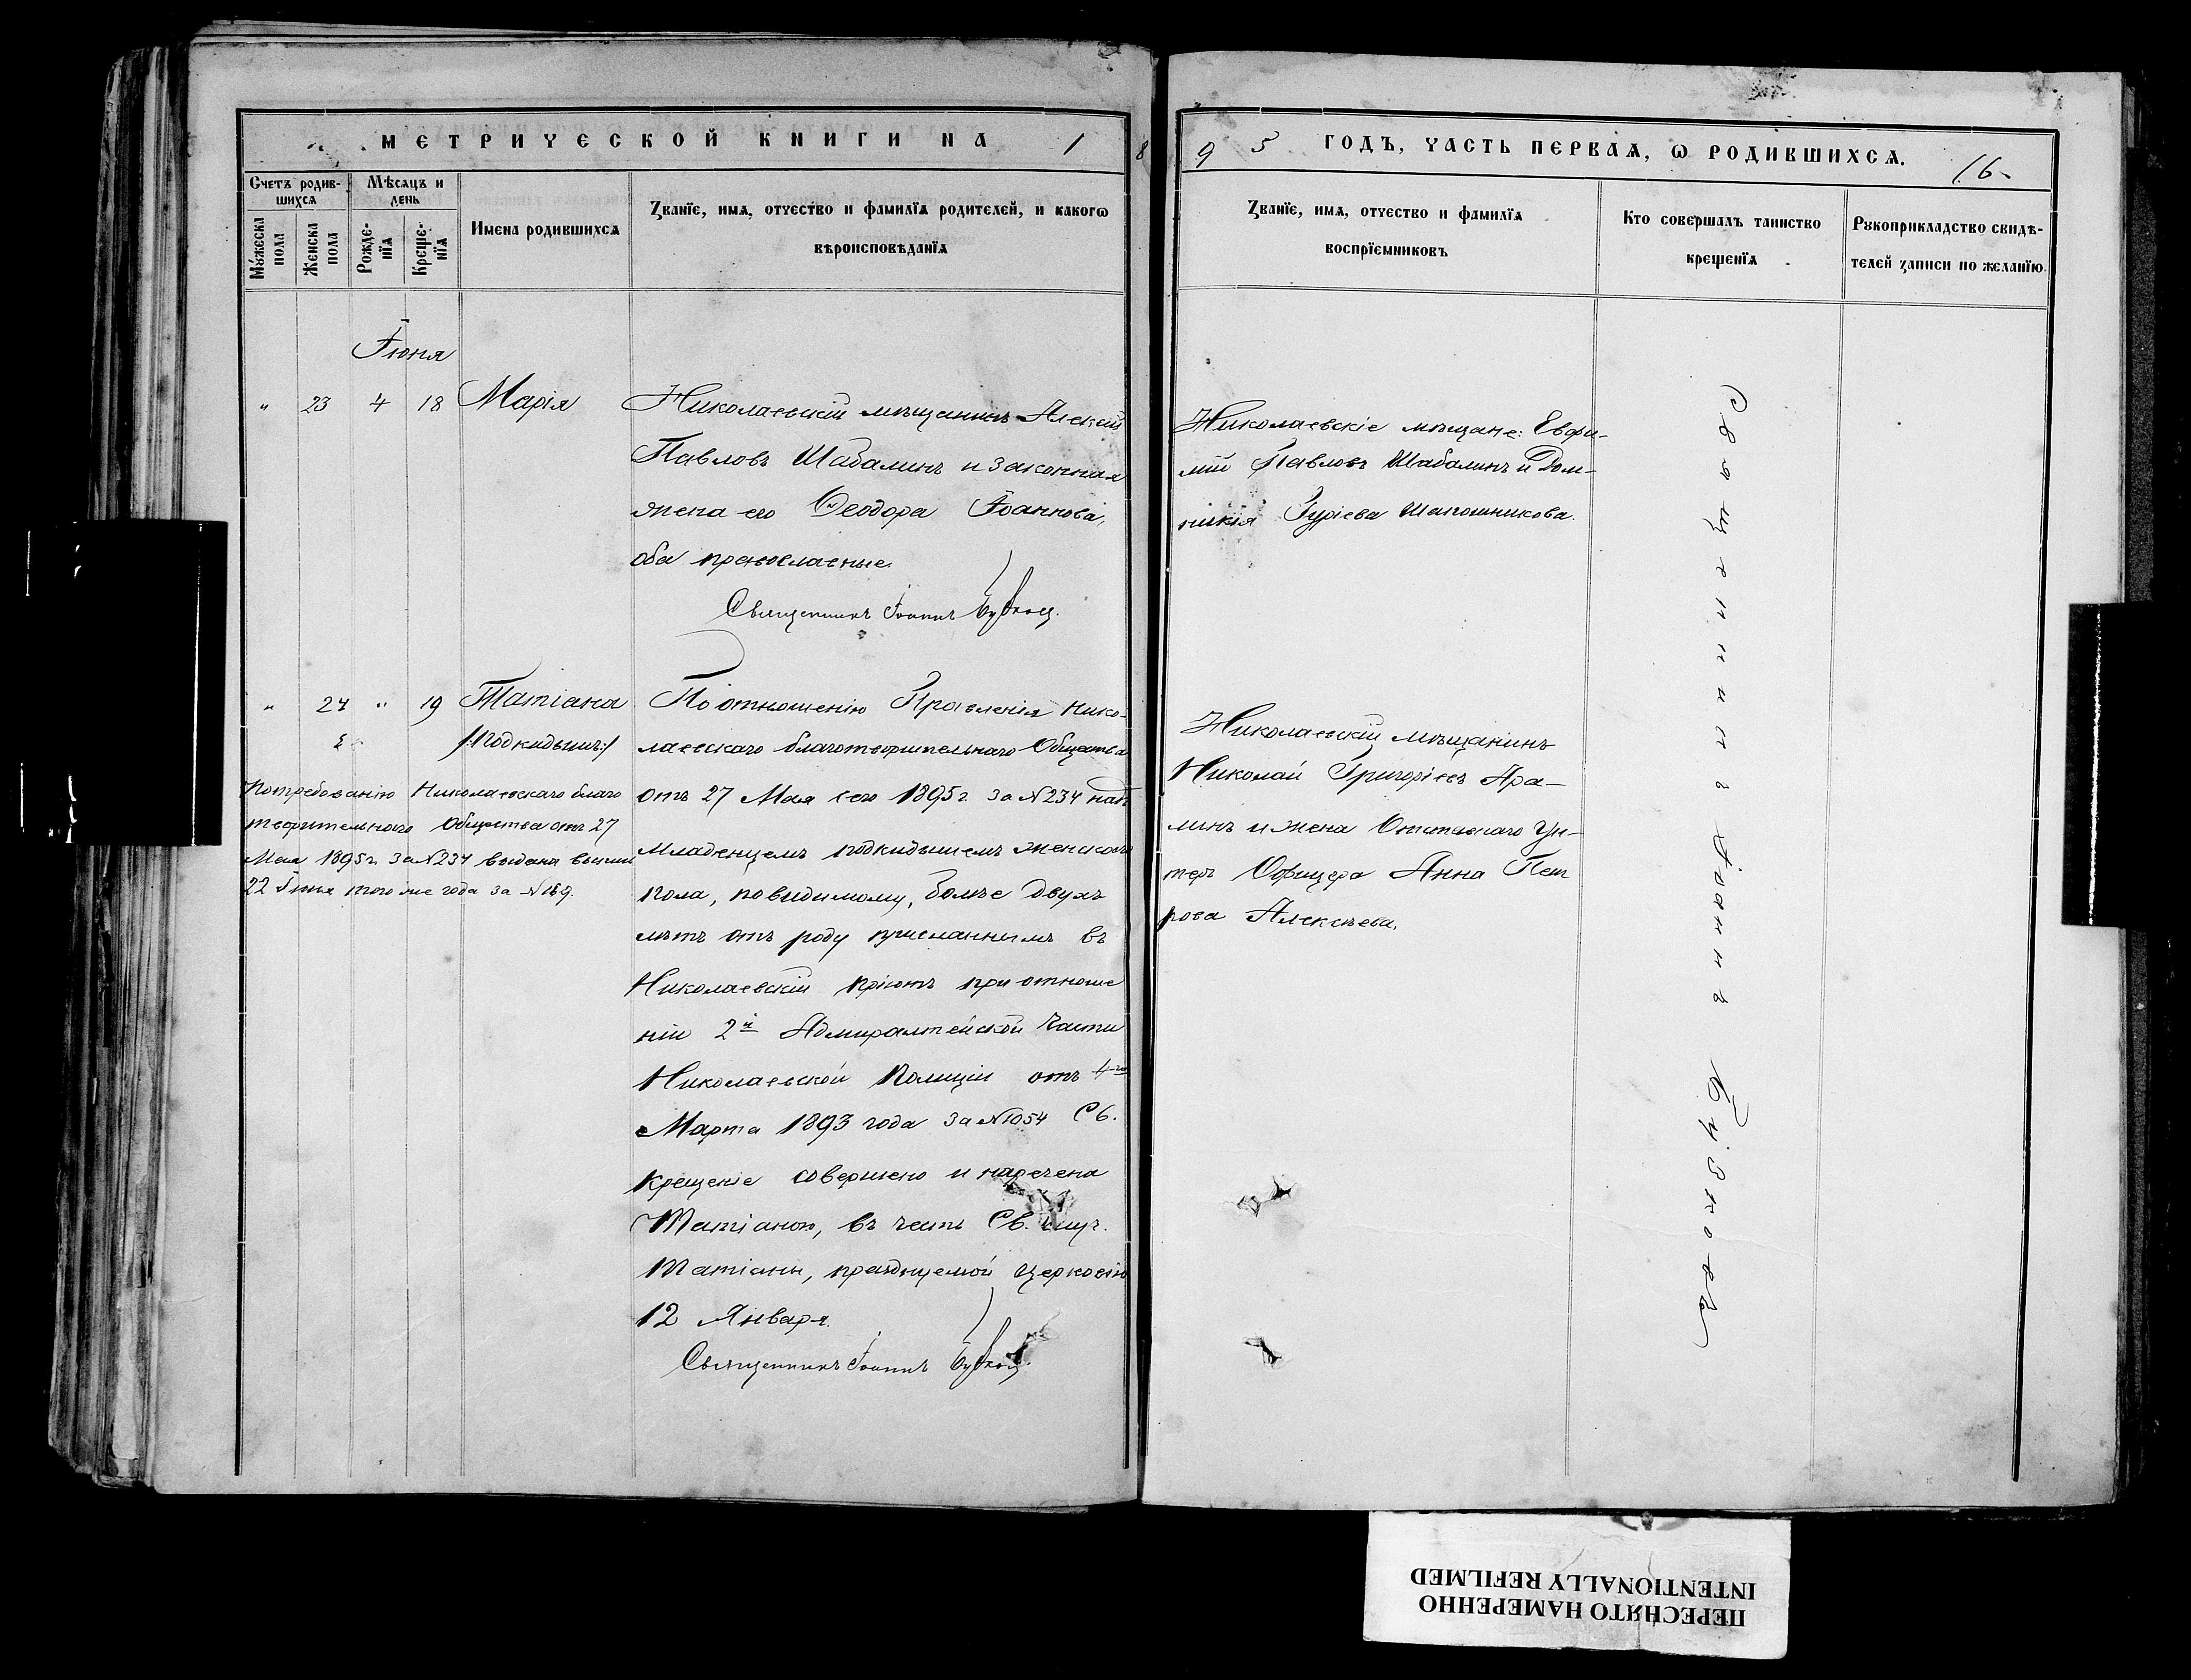 МЕТРИЧЕСКОЙ КНИГИ НА 1895 ГОДЪ, ЧАСТЬ ПЕРВАЯ, Ѡ РОДИВШИХСЯ. 16
Счетъ родив-
шихся
Мужеска пола
Женска пола
Мѣсяцъ и
день
Рожде-
нія
Креще-
нія
Имена родившихся
Званіе, имя, отчество и фамилія родителей, и какогѡ
вѣроисповѣданія
Званіе, имя, отчество и фамилія
воспріемниковъ
Кто совершалъ таинство
крещенія
Рукоприкладство свидѣ-
телей записи по желанію
Іюня
" 23 4 18 Марія
Николаевскій мѣщанинъ Алексѣй
Павловъ Шабалинъ и законная
жена его Ѳеодора Іоаннова,
оба православные.
Священникъ Іоаннъ
Николаевскіе мѣщане: Евфи-
мій Павловъ Шабалинъ и Дом-
никія Гуріева Шапошникова.
" 24 " 19 Татіана
/:Подкидышъ:/
По требованію Николаевскаго благо
творительнаго Общества отъ 27
Мая 1895 г. за № 234 выдана
22 Іюня того же года за № 189.
По отношенію Правленія Нико-
лаевскаго благотворительнаго Общества
отъ 27 Мая сего 1895 г. за № 234 надъ
младенцемъ подкидышемъ женскаго
пола, по видимому, болѣе двухъ
лѣтъ отъ роду присланнымъ въ
Николаевскій пріютъ при отноше
ніи 2й Адмиралтейской части
Николаевской Полиціи отъ 4го
Марта 1893 года за № 1054 Св.
крещеніе совершено и наречена
Татіаною, въ честь Св. муч.
Татіаны, празднуемой церковію
12 Января.
Священникъ Іоаннъ
Николаевскій мѣщанинъ
Николай Григорьевъ Ара-
линъ и жена Отставнаго Ун-
теръ Офицера Анна Пет
рова Алексѣева.
Священникъ Іоаннъ
ПЕРЕСНЯТО НАМЕРЕННО
INTENTIONALLY REFILMED